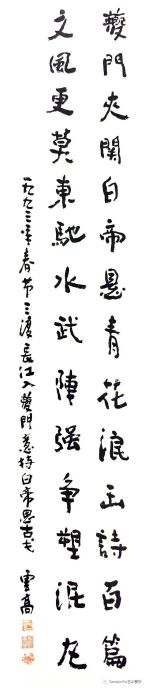 夔門夾關白帝懸青花浪玉詩百篇
文風更莫東馳水武陣强爭塑泥丸
一九九三年春节三渡長江入夔門意持白帝思古弋
雲高